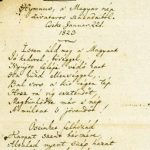 Hymnus, a' Magyar nép
zivataros századaiból.
Cseke Január 22d.
1823
O Isten áldd meg a' Magyart
Jó kedvvel, bőséggel,
Nyújts feléje védő kart
Ha küzd ellenséggel,
Bal sors a' kit régen tép
Hozz rá víg esztendőt,
Megbünhödte már e' nép
A' multat 's jövendőt!
Őseinket felhozád
Kárpát szent bérczére,
Általad nyert szép hazát